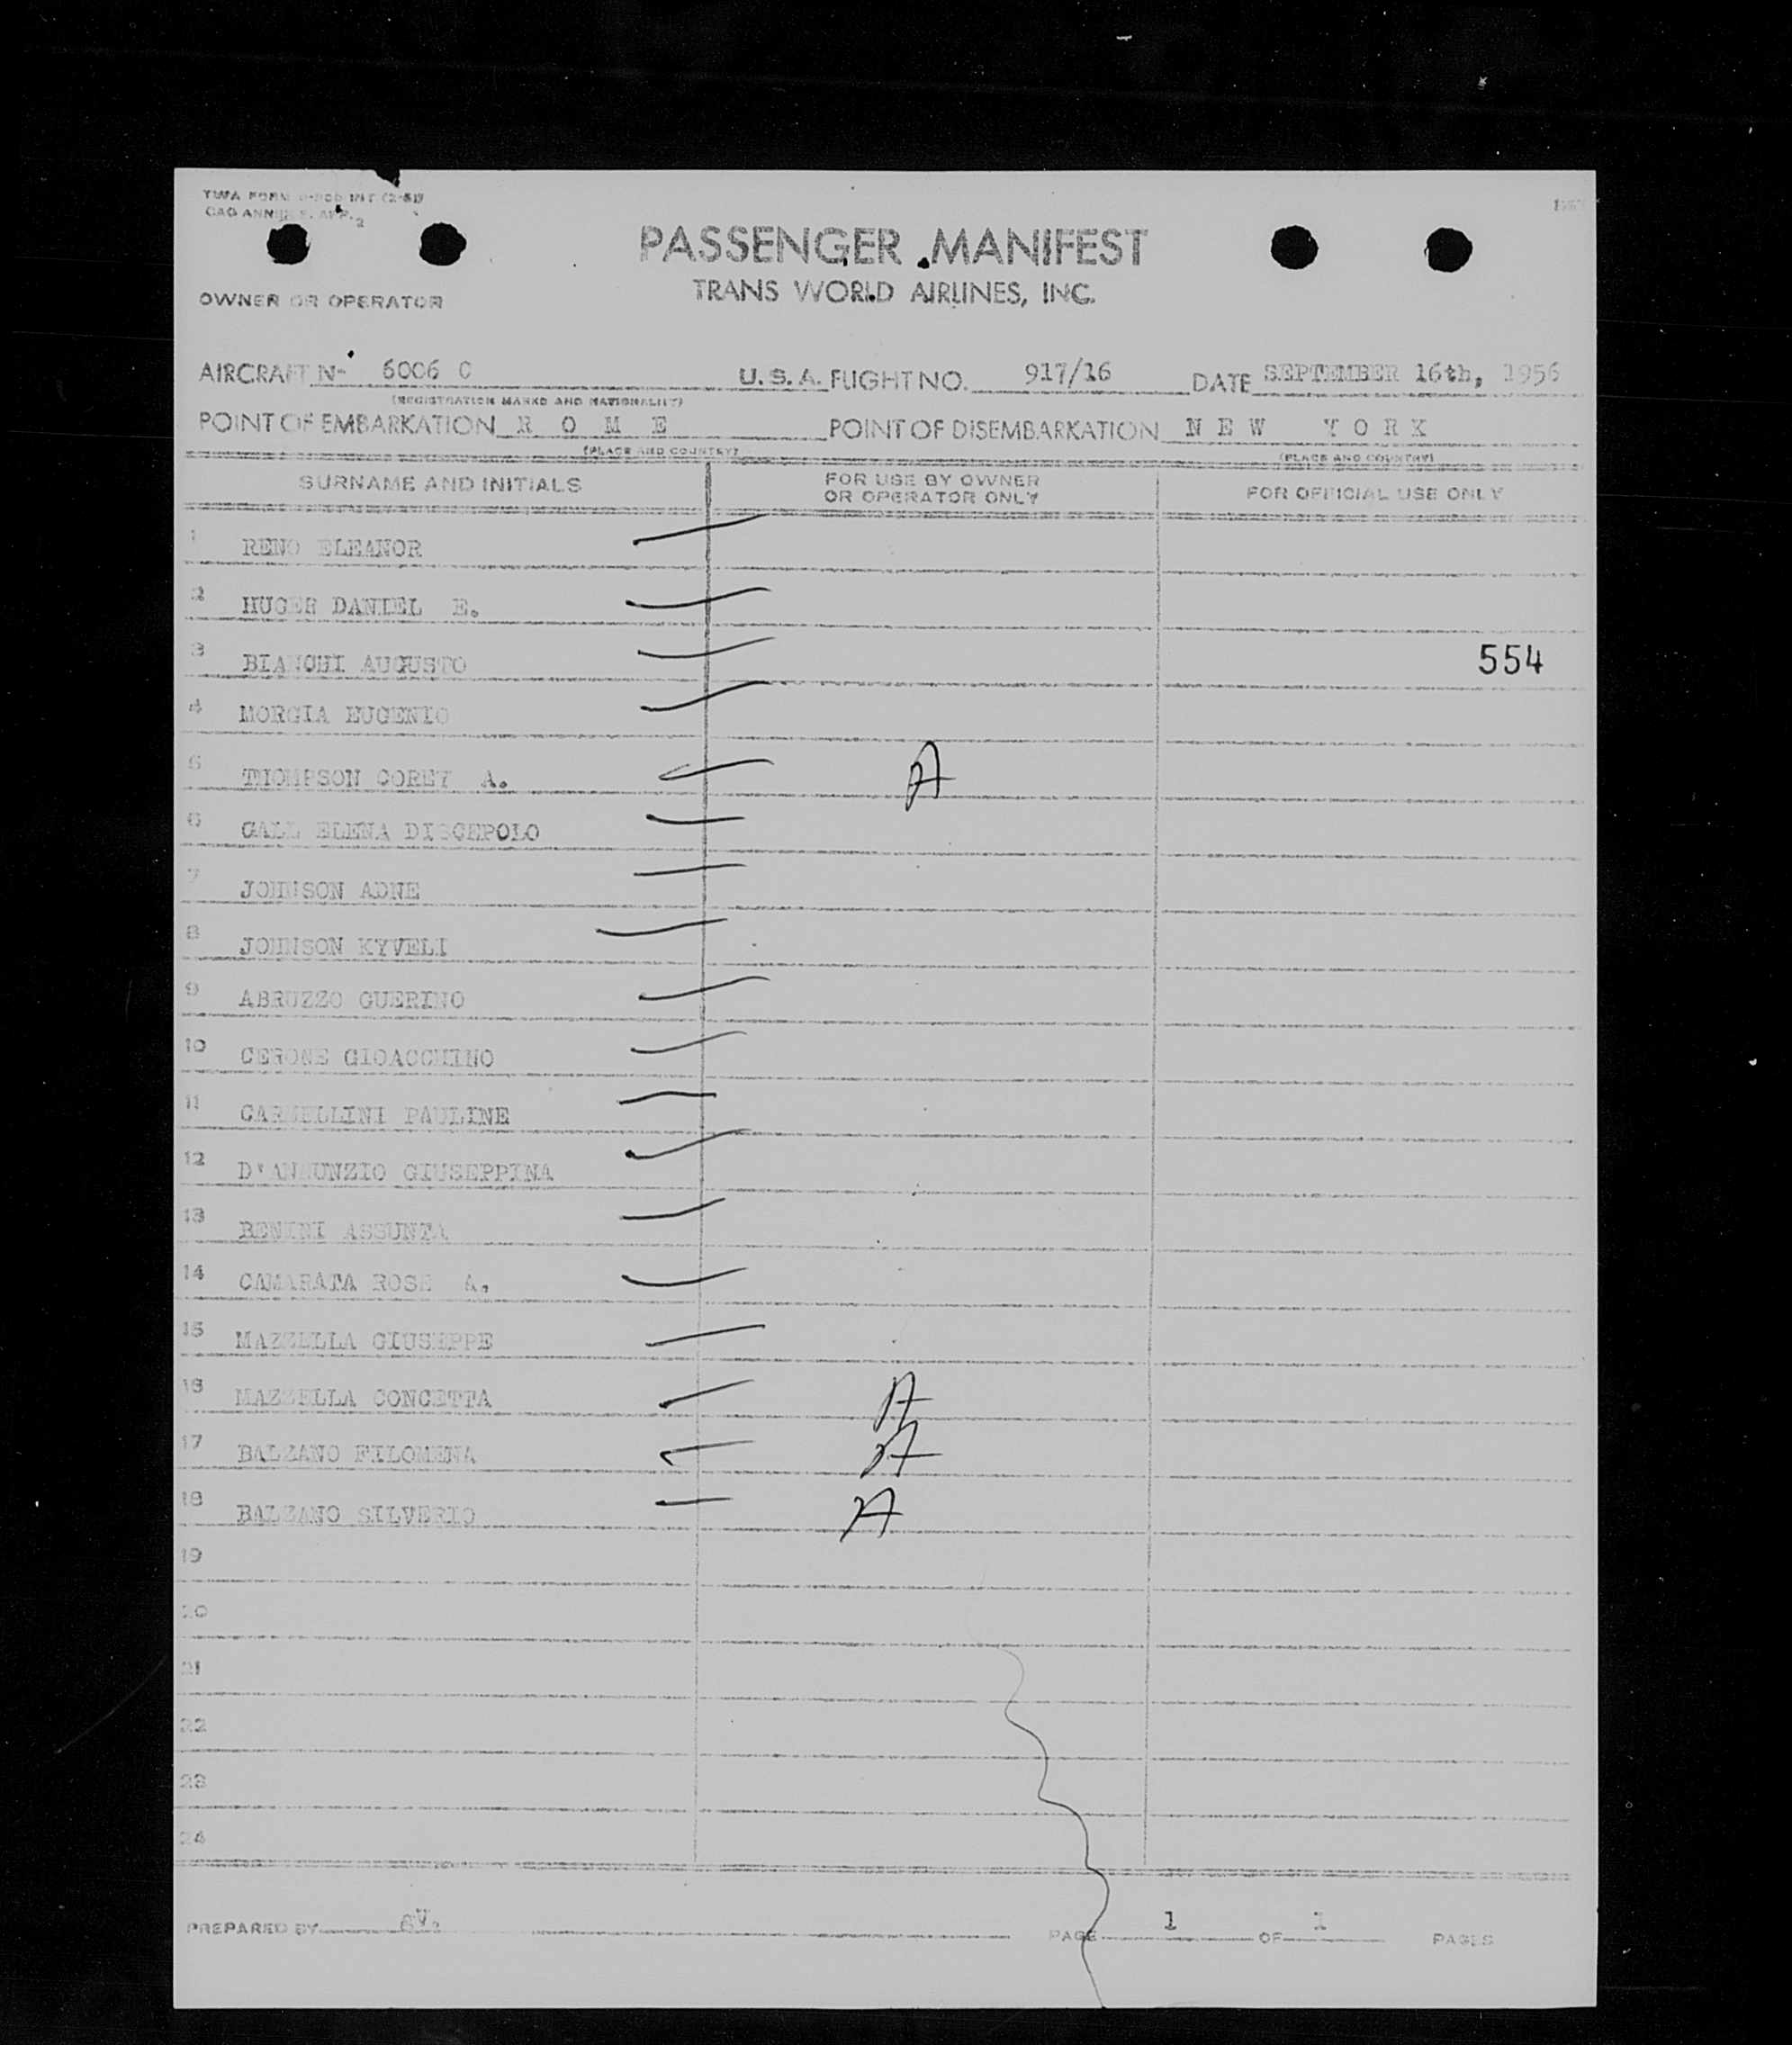 TWA FORM INT (2-51)
OWNER OR OPERATOR
PASSENGER MANIFEST
TRANS WORLD AIRLINES, INC.
AIRCRAFT N- 6006 C U.S.A. FLIGHT NO. 917/16 DATE SEPTEMBER 16th, 1956
(REGISTRATION MARKS AND NATIONALITY)
POINT OF EMBARKATION R O M E POINT OF DISEMBARKATION N E W Y O R K
(PLACE AND COUNTRY) (PLACE AND COUNTRY)
SURNAME AND INITIALS FOR USE BY OWNER OR OPERATOR ONLY FOR OFFICIAL USE ONLY
1 RENO ELEANOR
2 HUGER DANIEL E.
3 BIANCHI AUGUSTO 554
4 MORGIA EUGENIO
5 THOMPSON COREY A. A
6 GALL ELENA DISCEPOLO
7 JOHNSON ADNE
8 JOHNSON KYVELI
9 ABRUZZO GUERINO
10 CERONE GIOACCHINO
11 PAULINE
12 D'ANNUNZIO GIUSEPPINA
13 BENINI ASSUNTA
14 CAMARATA ROSE A.
15 MAZZELLA GIUSEPPE
16 MAZZELLA CONCETTA A
17 BALZANO FILOMENA A
18 BALZANO SILVERIO A
19
20
21
22
23
24
PREPARED BY PAGE 1 OF 1 PAGES